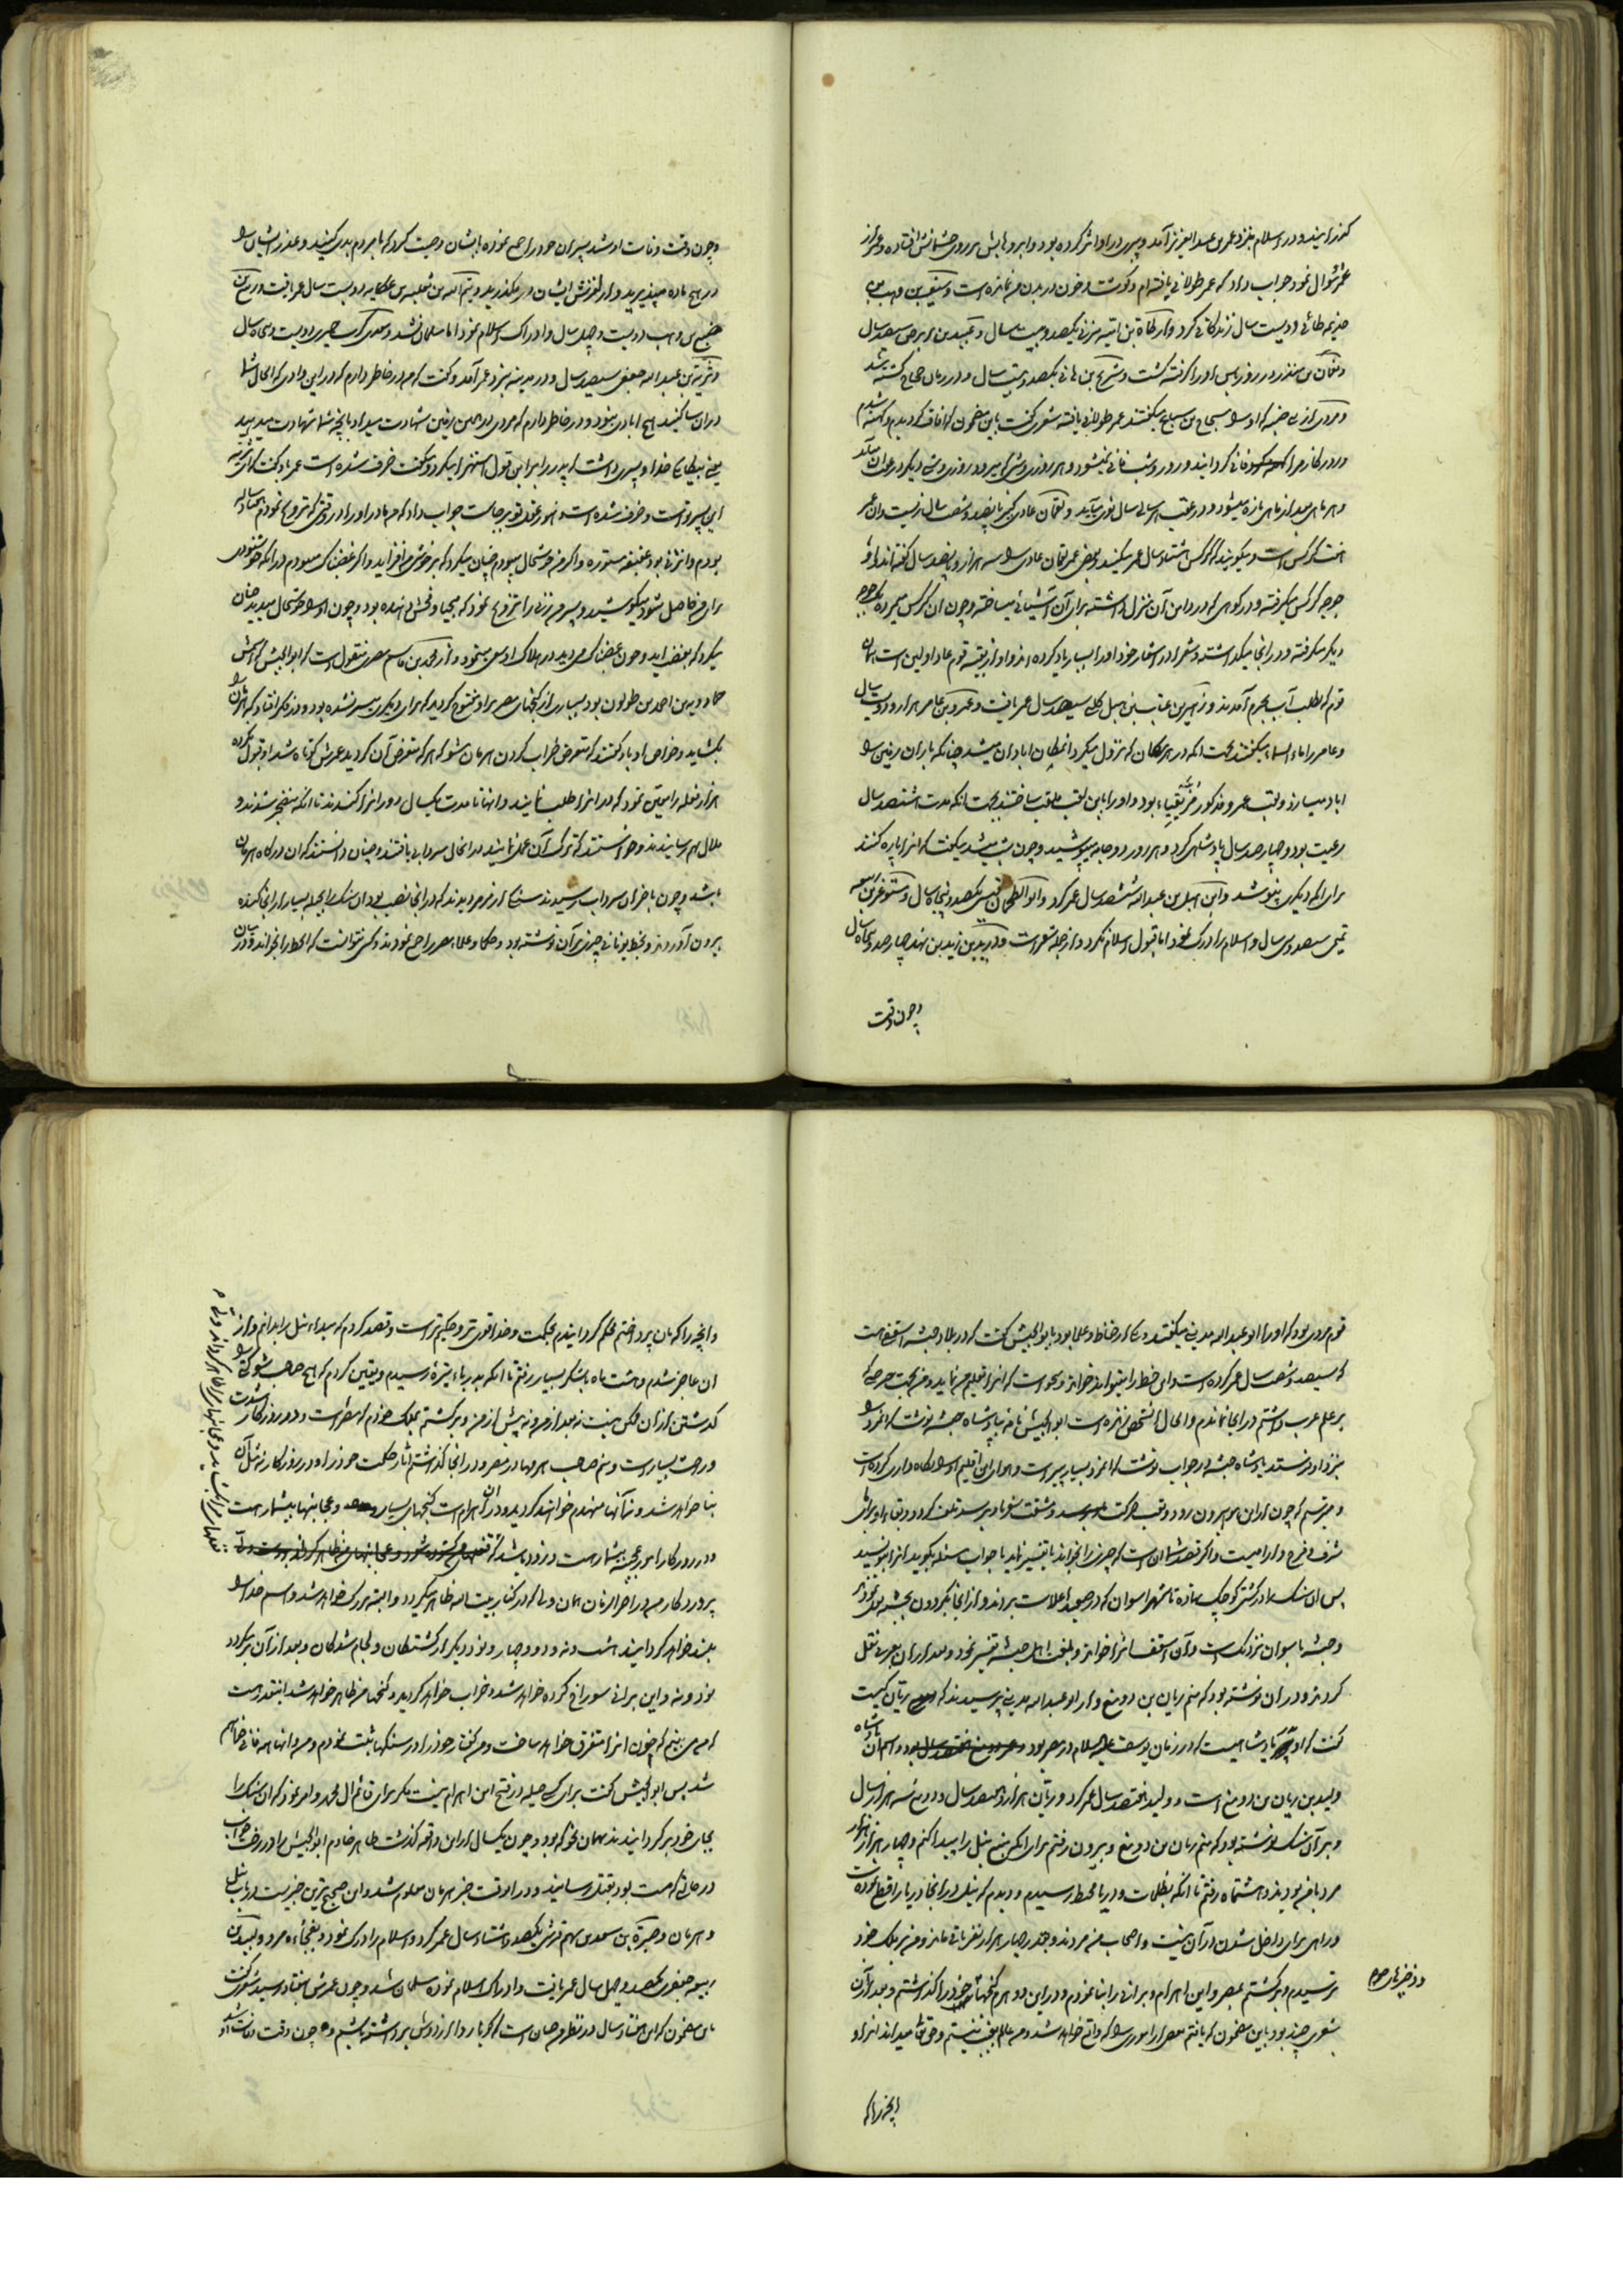 کذرانیده و در اسلام بنزد عمر بن عبد العزیز آمد و پیری در او اثر کرده بود و ابروهایش بر روی چشمانش افتاده و عمر از
عمرش سؤال نمود جواب داد که عمر طولانی یافته‌ام و کوشت و خون در بدن من نمانده است و
طائی دویست سال زندکانی کرد و ارطاة بن سهیه مزنی یکصد و بیست سال و عبید بن ابرص سیصد سال
و نعمان بن منذر در روز باس او را کرفته کشت و شریح بن هانی یکصد و بیست سال و در زمان حجاج کشته شد
و مردی از بنی ضبه که او را مسجاح بن سباع میکفتند عمر طولانی یافته شعری کفت باین مضمون که آفاق کردیدم و کهنه شدم
و روزکار مرا فانی کردانید و روز و شب فانی نمیشود و هر روزی و شبی که میرود روزی و شبی دیکر در عقب آن میآید
و هر ماهی بعد از ماهی تازه میشود و در عقب هر سالی سال نوی میآید و لقمان عادی کبیر پانصد و شصت سال زیست و آن عمر
هفت کرکس است و میکویند که کرکس هشتاد سال عمر میکند و بعضی عمر لقمان عادی را سه هزار و پانصد سال کفته‌اند و او
جوجه کرکس میکرفته و در کوهی که در دامن آن منزل داشته برای آن آشیانی میساخته و چون آن کرکس میمرده یک جوجه
دیکر میکرفته و در آنجا میکذاشته و شعرا در اشعار خود او را بسیار یاد کرده‌اند و او از بقیه قوم عاد اولین است همان
قوم که بطلب آب بحرم آمدند و زهیر بن عتاب بن هبل کلبی سیصد سال عمر یافت و عمرو بن عامر هزار و دویست سال
و عامر را ماء السماء میکفتند بجهت آنکه در هر مکان که نزول میکرد آن مکان آبادان میشد چنانکه باران زمین را
آباد میسازد و لقب عمرو مذکور مزیقیاء بود و او را باین لقب ملقب ساختند بجهت آنکه مدت هشتصد سال
رعیت بود و چهارصد سال پادشاهی کرد و هر روز دو جامه میپوشید و چون شب میشد میکفت که آنرا پاره کنند
برای آنکه دیکری نپوشد و ابن هبل بن عبد الله ششصد سال عمر کرد و ابو الطمحان قینی یکصد و پنجاه سال و مستوغر بن ربیعه
تمیمی سیصد و سی سال و اسلام را درک نمود اما قبول اسلام نکرد و از جمله شعراست و درید بن زید بن نهد چهارصد و پنجاه سال
و چون وقت
و چون وقت وفات او شد پسران خود را جمع نموده بایشان وصیت کرد که با مردم بدی کنید و عذر ایشان را
در هیچ باده مپذیرید و از لغزش ایشان در مکذرید و تیم الله بن ثعلبه بن عکابه دویست سال عمر یافت و ربیع بن
ضبیع بن وهب دویست و چهل سال و ادراک اسلام نمود اما مسلمان نشد و معدی کرب حمیری دویست و پنجاه سال
و شریة بن عبد الله جعفی سیصد سال و در مدینه بنزد عمر آمد و کفت که من در خاطر دارم که در این وادی که الحال شما
در آن ساکنید هیچ آبادی نبود و در خاطر دارم که مردی در همین زمین شهادت میداد بآنچه شما شهادت میدهید
یعنی بیکانکی خدا و پسری داشت که پدر را بر این قول استهزا میکرد و میکفت خرف شده است عمر باو کفت که ای شریه
این پسر تو است و خرف شده است و هنوز عقل تو برجاست جواب داد که من مادر او را در وقتی که تزویج نمودم هفتاد ساله
بودم و آن زنی بود عفیفه مستوره و اکر من خوشحال میبودم چنان میکرد که بر خوشی من افزاید و اکر غضبناک میبودم در آنکه خوشنودی
برای من حاصل شود میکوشید و پسر من زنی را تزویج نمود که بیحیا و فحش دهنده بود و چون او را خوشحال میدید چنان
میکرد که بغضب آید و چون غضبناک می‌دید در هلاک او سعی مینمود و از محمد بن قاسم مصری منقول است که ابو الجیش که اسمش
حمادویه بن احمد بن طولون بود بسیاری از کنجهای مصر برای او مفتوح کردید که برای دیکری میسر نشده بود و در فکر افتاد که هرمان را
بکشاید و خواص او باو کفتند که متعرض خراب کردن هرمان مشو که هر که متعرض آن کردید عمرش کوتاه شد او قبول نکرده
هزار فعله را معین نمود که در آنرا طلب نمایند و آنها تا مدت یکسال دور آنرا کندند تا آنکه منضجر شدند و
ملال بهم رسانیدند و خواستند که ترک آن عمل نمایند در آنحال سردابی یافتند و چنان دانستند که آن درکاه هرمان
باشد و چون بآخر آن سرداب رسیدند سنکی از مرمر دیدند که در آنجا نصب بود آن سنک را بحیله بسیار از آنجا کنده
بیرون آوردند و بخط یونانی چیزی بر آن نوشته بود و حکما و علماء مصر را جمع نمودند و کسی نتوانست که آنخط را بخواند و در میان
قوم مردی بود که او را ابو عبد الله مدینی میکفتند و یکی از حفاظ و علما بود بابو الجیش کفت که در بلاد حبشه اسقفی هست
که سیصد و شصت سال عمر کرده است و این خط را میتواند خواند و میخواست که آنرا تعلیم من نماید و من بجهت حرصی که
بر علم عرب داشتم در آنجا نماندم و الحال آن شخص زنده است ابو الجیش نامه بپادشاه حبشه نوشت که آنمرد را
بنزد او فرستد پادشاه حبشه در جواب نوشت که آنمرد بسیار پیر است و هوای این اقلیم او را نکاه داری کرده است
و میترسم که چون از این بوم بیرون رود و تعب حرکت و مشقت سفر باو برسد تلف کردد و بقاء او برای ما
شرف و فرح و آرامیست و اکر مقصد شما آن است که چیزی را بخواند یا تفسیر نماید یا جواب مسئله بکوید آنرا بنویسید
پس آن سنک را در کشتی کوچکی نهاده تا شهر اسوان که در صعید اعلاست بردند و از آنجا بکردون بحبشه نقل نمودند
و حبشه باسوان نزدیک است و آن اسقف آنرا خواند و بلغت اهل حبشه تفسیر نمود و بعد از آن بعربی نقل
کردند و در آن نوشته بود که منم ریان بن دومغ و از ابو عبد الله مدینی پرسیدند که ریان کیست
کفت که او پادشاهیست که در زمان یوسف علیه السلام در مصر بود و اسم آن پادشاه
ولید بن ریان بن دومغ است و ولید هفتصد سال عمر کرد و ریان هزار و هفتصد سال و دومغ سه هزار سال
و بر آن سنک نوشته بود که منم ریان بن دومغ و بیرون رفتم برای آنکه منبع نیل را پیدا کنم و چهار هزار هزار
مرد با من بودند و هشتماه رفتم تا آنکه بظلمات و دریاء محیط رسیدم و دیدم که نیل در آنجا دریا را قطع نموده
و راهی برای داخل شدن در آن نیست و اصحاب من مردند و بقدر چهار هزار نفر باقی ماند و من بر ملک خود
ترسیدم و برکشتم بمصر و این اهرام و برانی را بنا نمودم و در این دو هرم کنجهای خود را کذاشتم و بعد از آن
شعری چند بود باین مضمون که یافتم بعضی از اموری را که واقع خواهد شد و من عالم بغیب نیستم و حق تعالی میداند آنرا و
و ذخیرهای خود
آنچه را که
و آنچه را که بآن پرداختم محکم کردانیدم بحکمت و خدا قوی‌تر و حکیم‌تر است و قصد کردم که مبداء نیل را بدانم و از
آن عاجز شدم و هشت ماه با لشکر بسیار رفتم تا آنکه بدریاء تیره رسیدم و یقین کردم که هیچ صاحب شوکتی را
کذشتن از آن ممکن نیست نه بعد از من و نه پیش از من و برکشتم بملک خودم که مصر است و در روزکار شدت
و راحت بسیار است و منم صاحب هرمها در مصر و در آنجا کذاشتم آثار حکمت خود را و در روزکار نه مثل آن
بنا خواهد شد و نه آنها منهدم خواهند کردید و در آن اهرام است کنجهای بسیار و عجائبها بیشمار هست
و در روزکار امور عجیبه بیشمار هست و زود باشد که
پروردکار من در آخر الزمان همان ولی که در کنار بیت الله ظاهر میکردد و البته بزرک خواهد شد و اسم خدا را
بلند خواهد کردانید هشت و نه و دو و چهار و نود دیکر از کشتکان و لجام شدکان و بعد از آن برمیکردد
نود و نه و این برانی سوراخ کرده خواهد شد و خراب خواهد کردید و کنجهای من ظاهر خواهد شد اینقدر هست
که می‌بینم که خون آنرا متفرق خواهد ساخت و من کفتارهای خود را در سنکها ثبت نمودم و من و آنها همه فانی خواهیم
شد پس ابو الجیش کفت برای کسی حیله در فتح این اهرام نیست مکر برای قائم آل محمد و امر نمود که آن سنک را
بجای خود برکردانیدند بهمان نحو که بود و چون یکسال از این واقعه کذشت طاهر خادم ابو الجیش را در رختخواب
در حالتی که مست بود بقتل رسانید و در آنوقت خبر هرمان معلوم شد و این صحیح‌ترین خبریست در باب نیل
و هرمان و صبیرة بن سعد بن سهم قرشی یکصد و هشتاد سال عمر کرد و اسلام را درک نمود و بفجأه مرد و لبید بن
ربیعه جعفری یکصد و چهل سال عمر یافت و ادراک اسلام نموده مسلمان شد و چون عمرش بهفتاد رسید شعری کفت
باین مضمون که این هفتاد سال در نظر من چنان است که کویا ردائی از دوش برداشته باشم و چون وقت وفات او شد